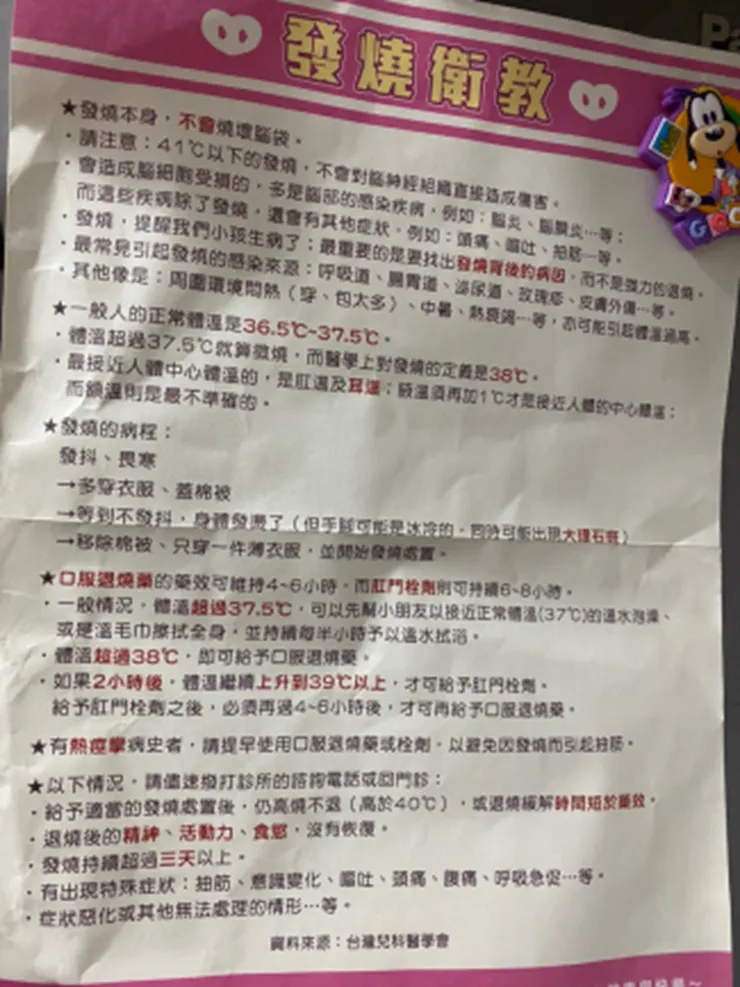 發燒衛教
★發燒本身，不會燒壞腦袋。
・請注意：41℃以下的發燒，不會對腦神經組織直接造成傷害。
・會造成腦細胞受損的，多是腦部的感染疾病，例如：腦炎、腦膜炎…等；
而這些疾病除了發燒，還會有其他症狀，例如：頭痛、嘔吐、抽筋…等。
・發燒，提醒我們小孩生病了；最重要的是要找出發燒背後的病因，而不是強力的退燒。
・最常見引起發燒的感染來源：呼吸道、腸胃道、泌尿道、玫瑰疹、皮膚外傷…等。
・其他像是：周圍環境悶熱（穿、包太多）、中暑、熱衰竭…等，亦可能引起體溫過高。
★一般人的正常體溫是36.5℃~37.5℃。
・體溫超過37.5℃就算微燒，而醫學上對發燒的定義是38℃。
・最接近人體中心體溫的，是肛溫及耳溫；腋溫須再加1℃才是接近人體的中心體溫；
而額溫則是最不準確的。
★發燒的病程：
發抖、畏寒
→多穿衣服、蓋棉被
→等到不發抖，身體發燙了（但手腳可能是冰冷的，同時可能出現大理石斑）
→移除棉被、只穿一件薄衣服，並開始發燒處置。
★口服退燒藥的藥效可維持4~6小時，而肛門栓劑則可持續6~8小時。
・一般情況，體溫超過37.5℃，可以先幫小朋友以接近正常體溫(37℃)的溫水泡澡、
或是溫毛巾擦拭全身，並持續每半小時予以溫水拭浴。
・體溫超過38℃，即可給予口服退燒藥。
・如果2小時後，體溫繼續上升到39℃以上，才可給予肛門栓劑。
給予肛門栓劑之後，必須再過4~6小時後，才可再給予口服退燒藥。
★有熱痙攣病史者，請提早使用口服退燒藥或栓劑，以避免因發燒而引起抽筋。
★以下情況，請儘速撥打診所的諮詢電話或回門診：
・給予適當的發燒處置後，仍高燒不退（高於40℃），或退燒緩解時間短於藥效。
・退燒後的精神、活動力、食慾，沒有恢復。
・發燒持續超過三天以上。
・有出現特殊症狀：抽筋、意識變化、嘔吐、頭痛、腹痛、呼吸急促…等。
・症狀惡化或其他無法處理的情形…等。
資料來源：台灣兒科醫學會